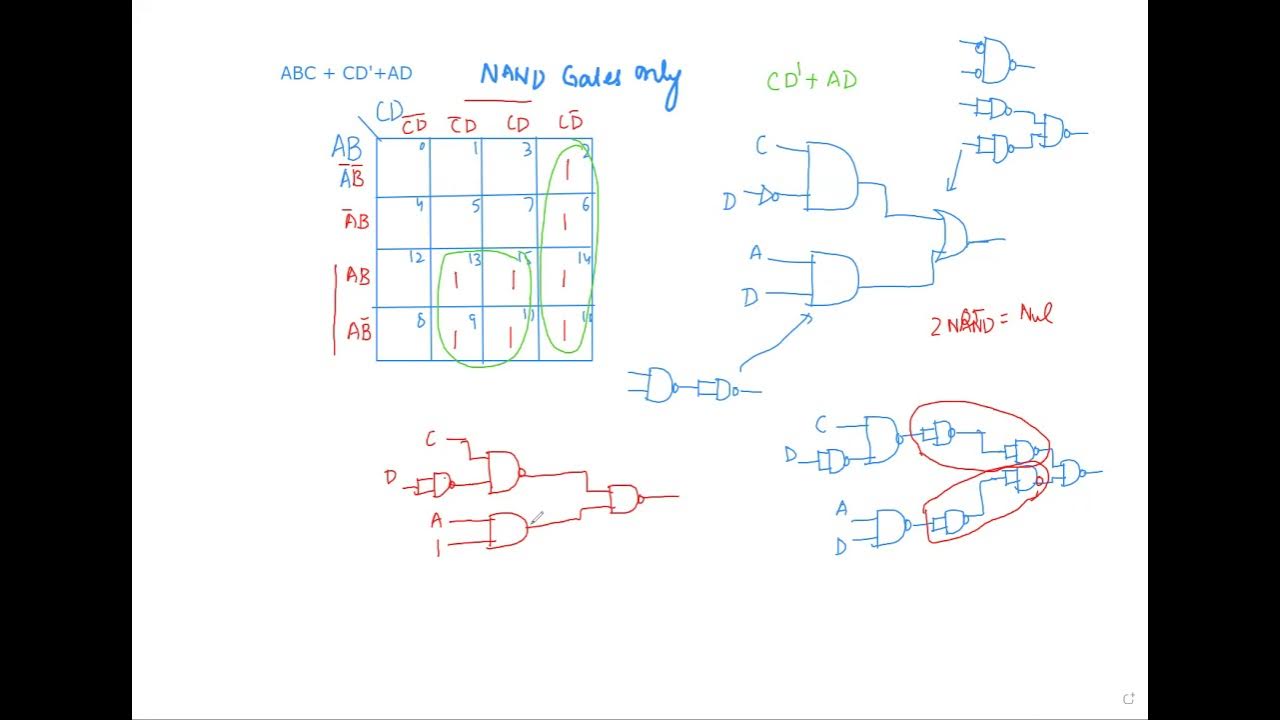 ABC + CD'+AD
NAND Gates only
CD'+ AD
CD
C̅D̅ C̅D CD CD̅
AB
A̅B̅ 0 1 3 2
1
A̅B 4 5 7 6
1
AB 12 13 15 14
1 1 1
AB̅ 8 9 11 10
1 1 1
C
D
A
D
2 NAND = Nul
C
D
A
D
C
D
A
1